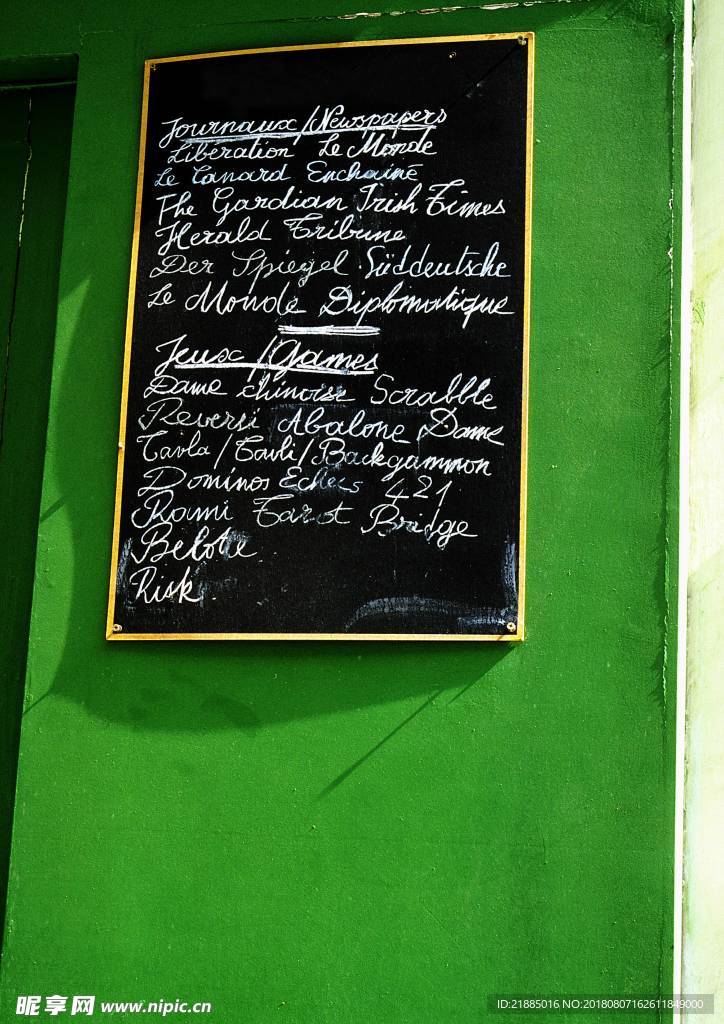 Journaux/Newspapers
Libération Le Monde
Le Canard Enchainé
The Gardian Irish Times
Herald Tribune
Der Spiegel. Süddeutsche
Le Monde Diplomatique
Jeux/Games
Dame chinoise Scrabble
Reversi Abalone Dame
Tavla/Tavli/Backgammon
Dominos Echecs 421
Rami Tarot Bridge
Belote
Risk
昵享网 www.nipic.cn
ID:21885016 NO:20180807162611849000